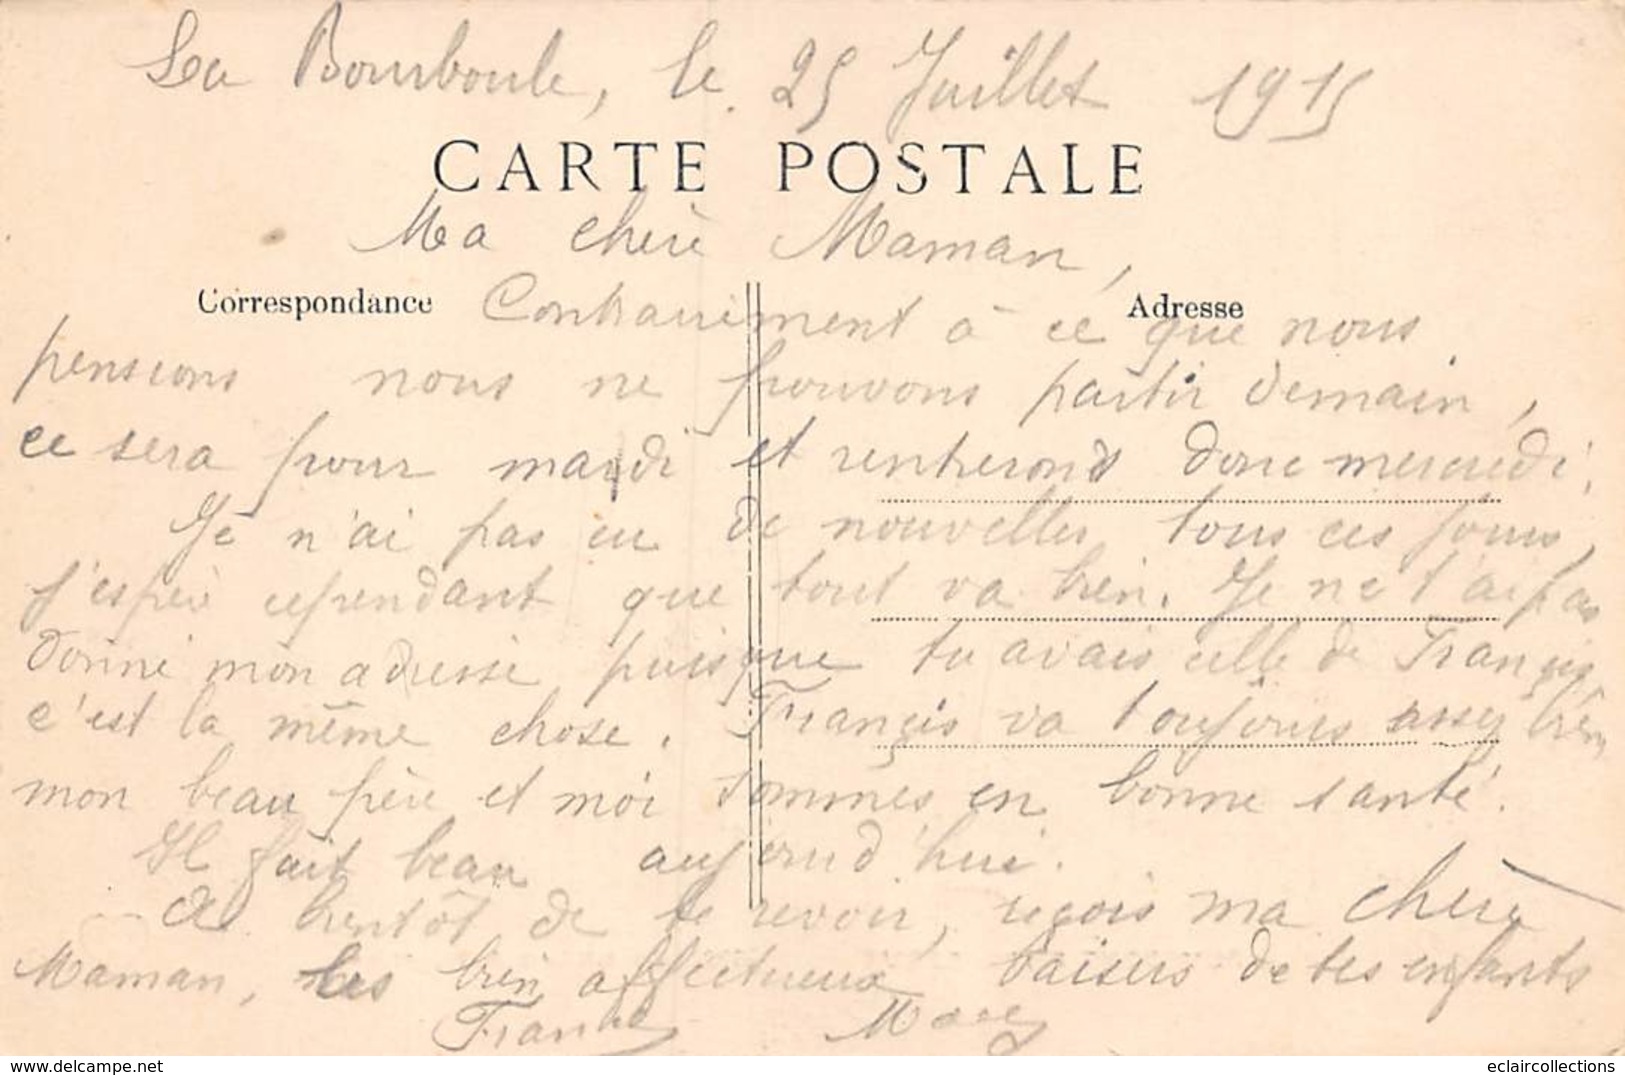 La Bourboule, le 25 Juillet 1915
CARTE POSTALE
Ma chère Maman,
Correspondance
Adresse
Contrairement à ce que nous
pensions nous ne pouvons partir demain,
ce sera pour mardi et rentrerons donc mercredi.
Je n'ai pas eu de nouvelles tous ces jours,
j'espère cependant que tout va bien. Je ne t'ai pas
donné mon adresse puisque tu avais celle de François
c'est la même chose. François va toujours assez bien,
mon beau père et moi sommes en bonne santé.
Il fait beau aujourd'hui.
A bientôt de te revoir, reçois ma chère
Maman, les bien affectueux baisers de tes enfants
delcampe.net
eclaircollections